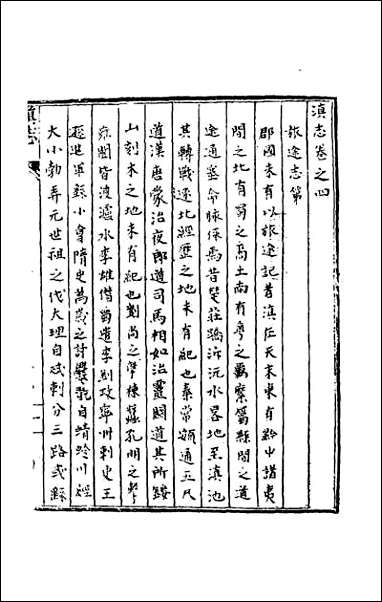 滇志卷之四
旅途志第
郡國未有以旅途記昔滇在天末東有黔中諸夷
間之北有蜀之禹土南有粵之羈縻蜀縣間之道
途通塞命脉係焉昔楚莊蹻泝沅水畧地至滇池
其轉戰逐北經歷之地未有紀也秦常頞通五尺
道漢唐蒙治夜郎道司馬相如治靈關道其所鏤
山刻木之地未有紀也劉尚之擊棟蠶孔明之擊
雍闓皆渡瀘水李雄僭蜀遣李驤攻寧州刺史王
遜進軍蘇小會隋史萬歲之討爨翫自蜻蛉川經
大小勃弄元世祖之伐大理自忒剌分三路或繇